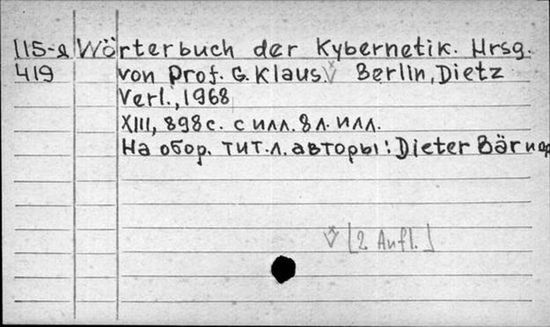 П5-2 Wörterbuch der Kybernetik. Hrsg.
419 von Prof. G. Klaus. Berlin, Dietz
Verl., 1968
XIII, 898 с. с илл. 8 л. илл.
На обор. тит. л. авторы: Dieter Bärwo
[2. Aufl.]